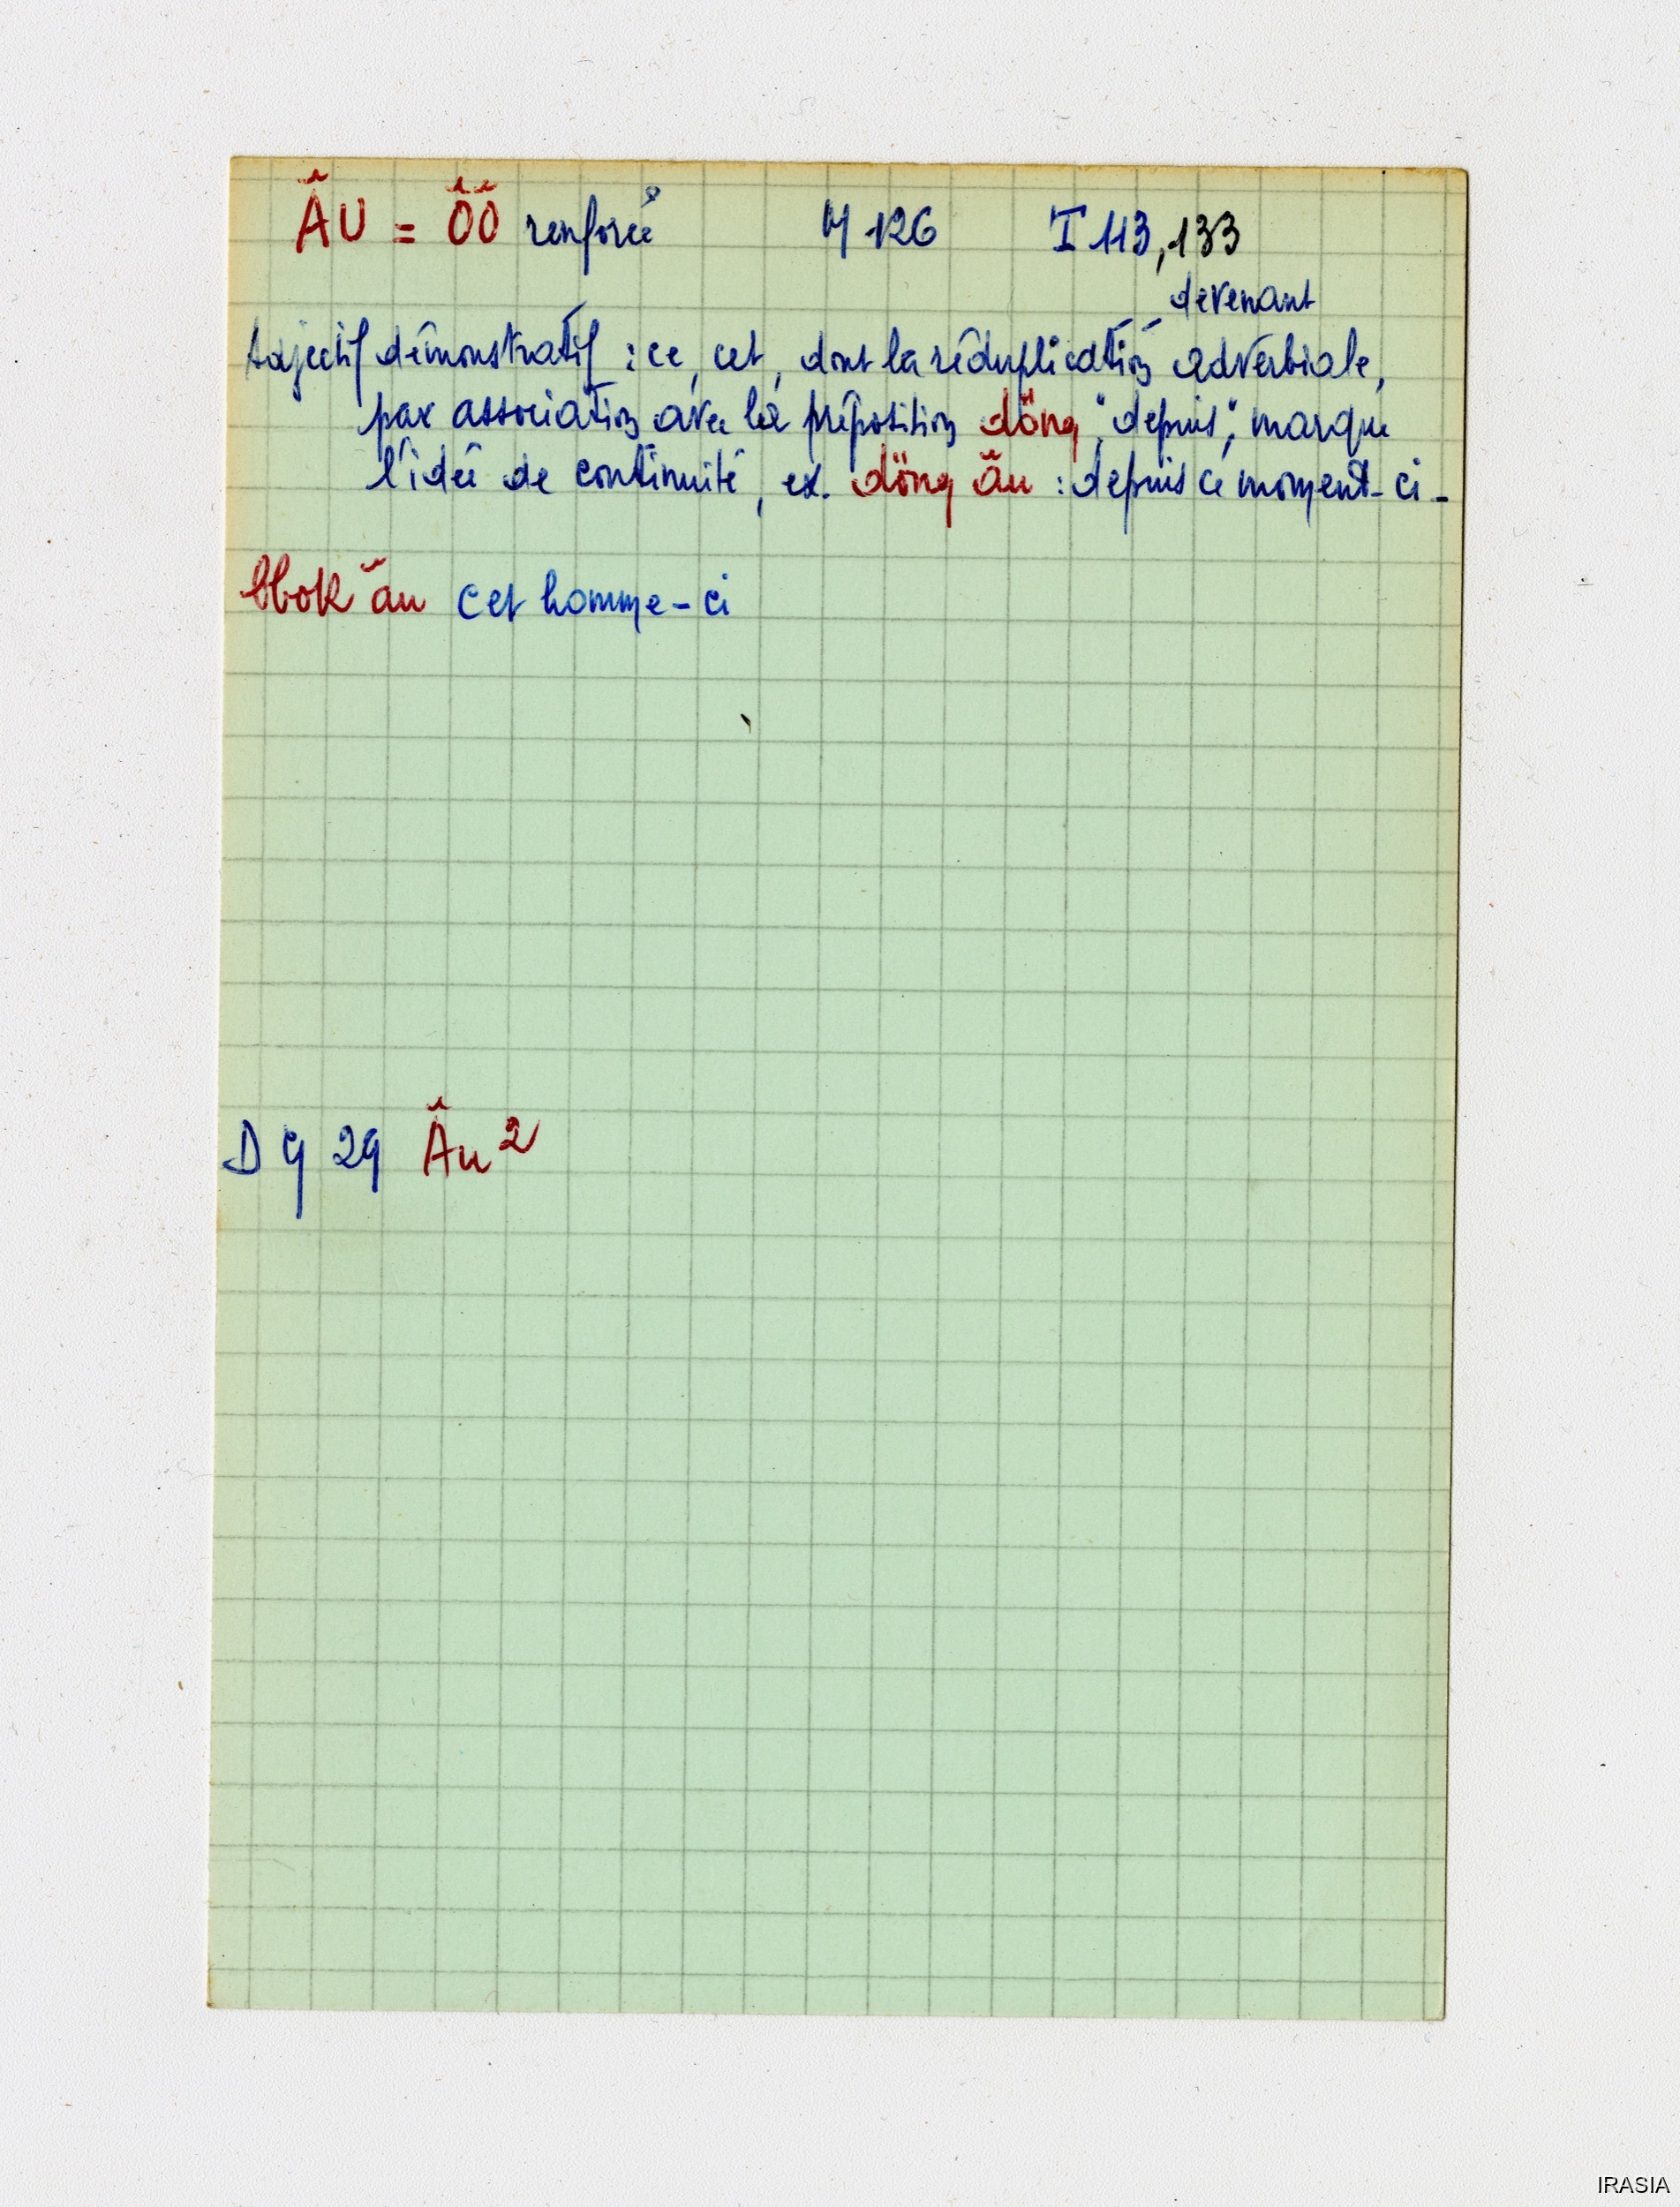 ÂU = ÔÔ renforcé M 126 I 113, 133
devenant
Adjectif démonstratif : ce, cet, dont la réduplication adverbiale,
par association avec la préposition döng "depuis", marque
l'idée de continuité, ex. döng âu : depuis ce moment-ci -
bbok âu cet homme-ci
D 9 29 Âu 2
IRASIA